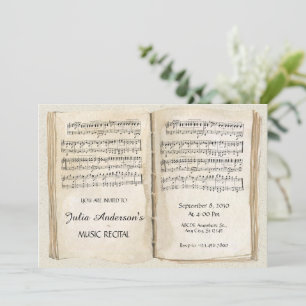 YOU ARE INVITED TO
Julia Anderson's
MUSIC RECITAL
September 8, 2030
At 4:00 Pm
ABCDE Anywhere St.,
Any City, St 12345
Rsvp to